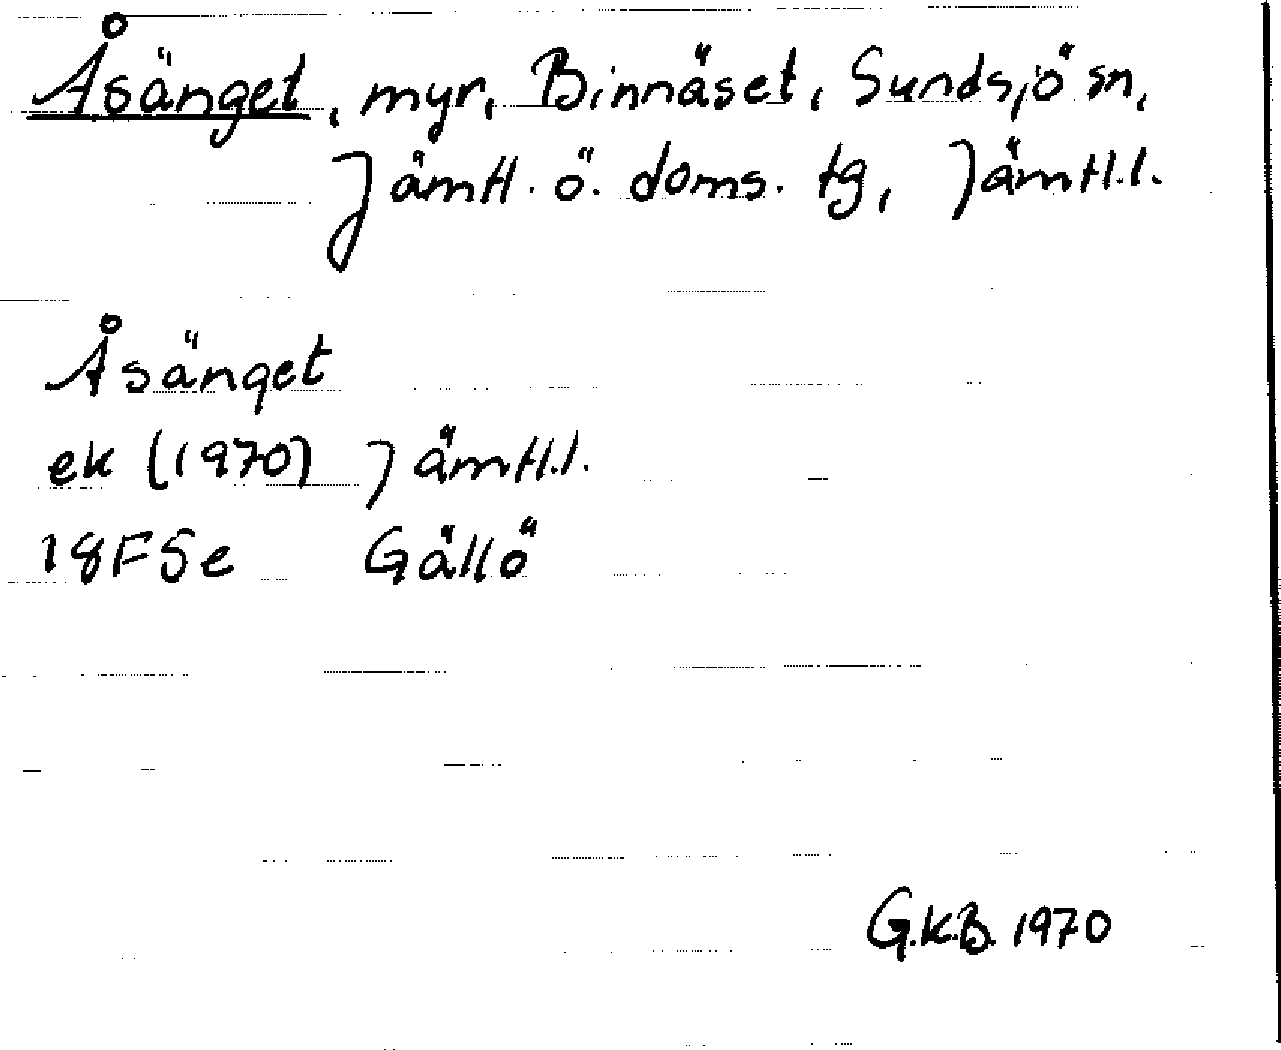 Åsänget, myr, Binnäset, Sundsjö sn,
Jämtl. ö. doms. tg, Jämtl.l.
Åsänget
ek (1970) Jämtl.l.
18F5e Gällö
G.K.B. 1970